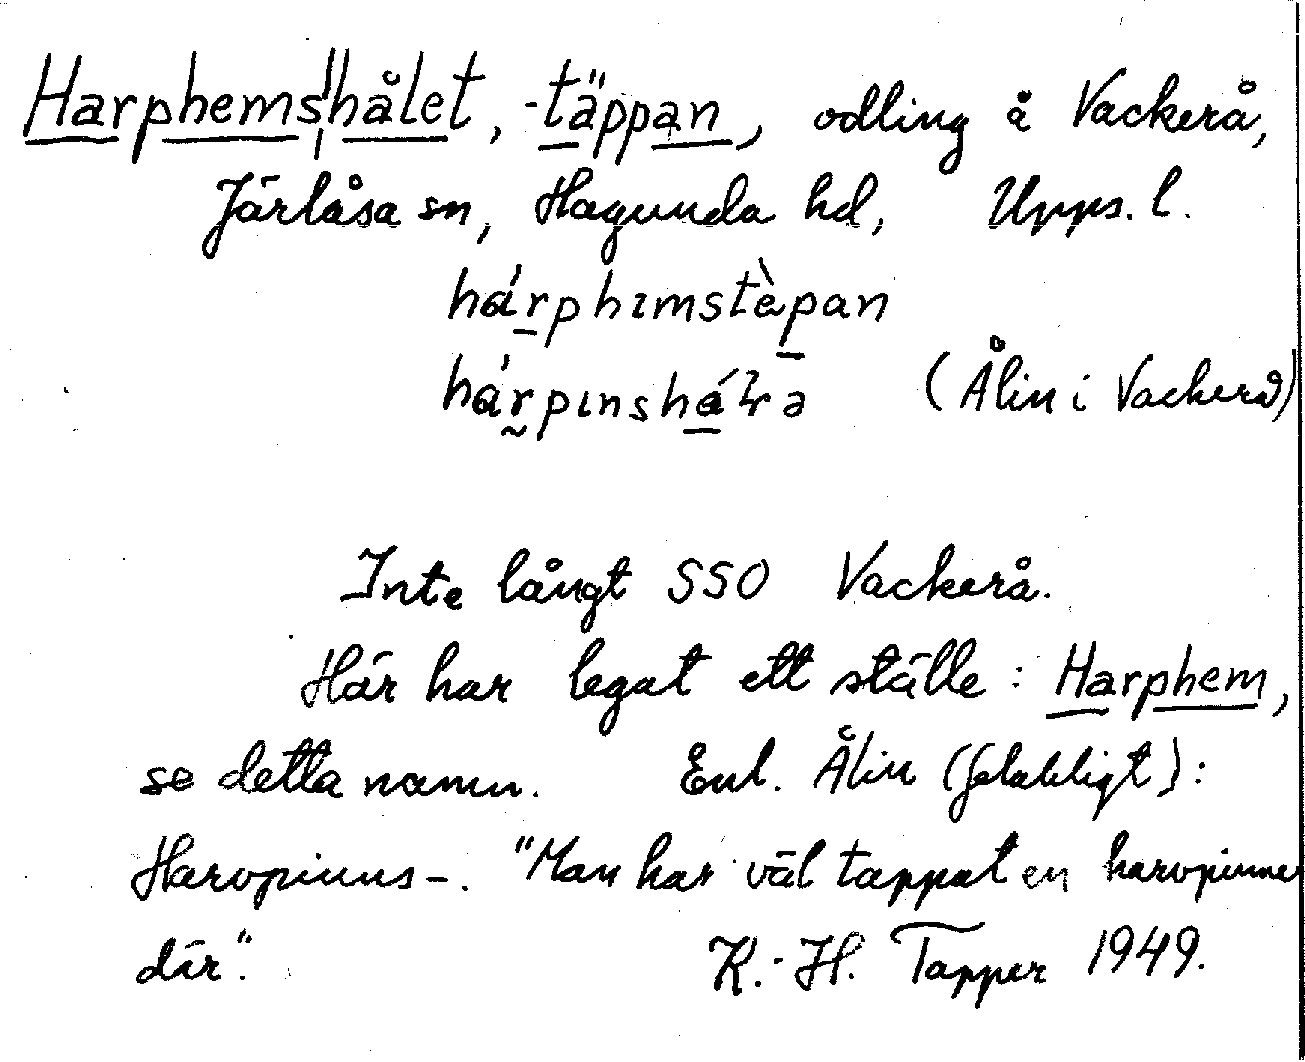 Harphemshålet, -täppan, odling å Vackerå,
Järlåsa sn, Hagunda hd, Upps. l.
hárphımstὲpan
hárpınshá̵ɽə (Ålin i Vackerå)
Inte långt SSO Vackerå.
Här har legat ett ställe: Harphem,
se detta namn. Enl. Ålin (felaktigt):
Harvpinns-. "Man har väl tappat en harvpinne
där".
K.-H. Tapper 1949.